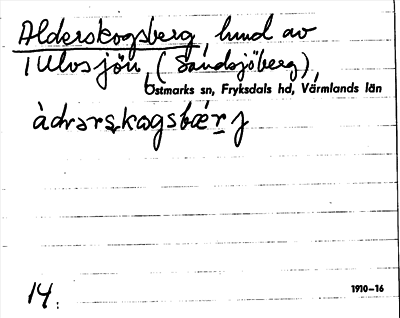 Alderskogsberg, hund av
Ulvsjön, (Sandsjöberg),
Östmarks sn, Fryksdals hd, Värmlands län
àdərskogsbær̲j
14.
1910–16